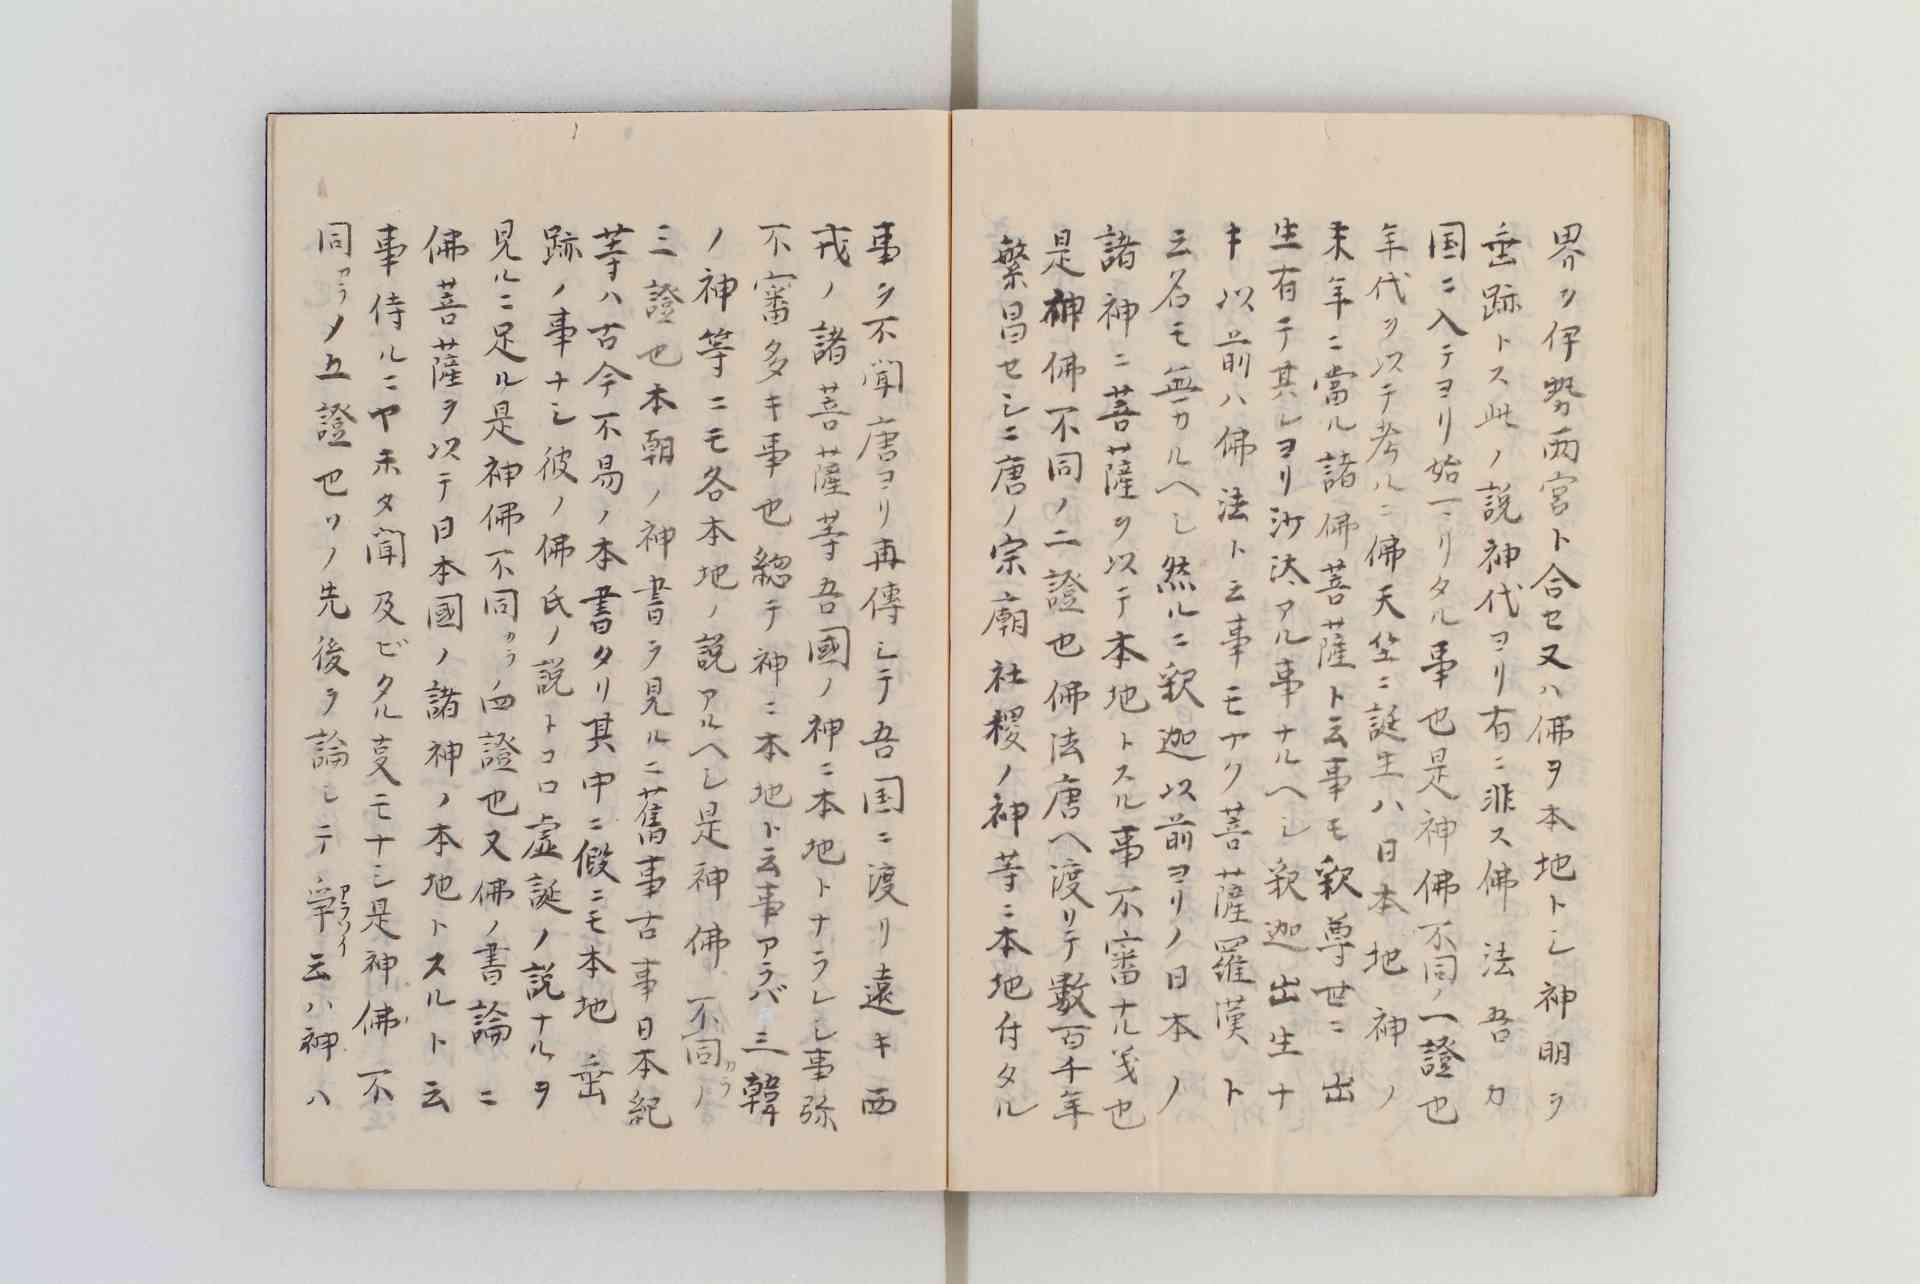 界ヲ伊勢両宮ト合セ又ハ佛ヲ本地トシ神明ヲ
垂跡トス此ノ説神代ヨリ有ニ非ス佛法吾カ
国ニ入テヨリ始マリタル事也是神佛不同ノ一證也
年代ヲ以テ考ルニ佛天竺ニ誕生ハ日本地神ノ
末年ニ當ル諸佛菩薩ト云事モ釈尊世ニ出
生有テ其レヨリ沙汰アル事ナルヘシ釈迦出生ナ
キ以前ハ佛法ト云事モナク菩薩羅漢ト
云名モ無カルヘシ然ルニ釈迦以前ヨリノ日本ノ
諸神ニ菩薩ヲ以テ本地トスル事不審ナル義也
是神佛不同ノ二證也佛法唐ヘ渡リテ數百千年
繁昌セシニ唐ノ宗廟社稷ノ神等ニ本地付タル
事ヲ不聞唐ヨリ再傳シテ吾国ニ渡リ遠キ西
戎ノ諸菩薩等吾國ノ神ニ本地トナラレシ事弥
不審多キ事也総テ神ニ本地ト云事アラバ三韓
ノ神等ニモ各本地ノ説アルヘシ是神佛不同カラノ
三證也本朝ノ神書ヲ見ルニ舊事古事日本紀
等ハ古今不易ノ本書タリ其中ニ假ニモ本地垂
跡ノ事ナシ彼ノ佛氏ノ説トコロ虚誕ノ説ナルヲ
見ルニ足ル是神佛不同カラノ四證也又佛ノ書論ニ
佛菩薩ヲ以テ日本國ノ諸神ノ本地トスルト云
事侍ルニヤ未タ聞及ビタル㕝モナシ是神佛不
同カラノ五證也ソノ先後ヲ論シテ争アラソイ云ハ神ハ